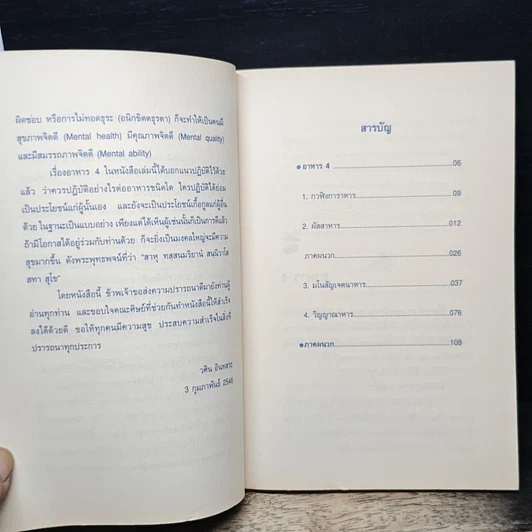 ผิดชอบ หรือการไม่ทอดธุระ (อนิกขิตตธุรตา) ก็จะทำให้เป็นคนมี
สุขภาพจิตดี (Mental health) มีคุณภาพจิตดี (Mental quality)
และมีสมรรถภาพจิตดี (Mental ability)
เรื่องอาหาร 4 ในหนังสือเล่มนี้ได้บอกแนวปฏิบัติไว้ด้วย
แล้ว ว่าควรปฏิบัติอย่างไรต่ออาหารชนิดใด ใครปฏิบัติได้ย่อม
เป็นประโยชน์แก่ผู้นั้นเอง และยังจะเป็นประโยชน์เกื้อกูลแก่ผู้อื่น
ด้วย ในฐานะเป็นแบบอย่าง เพียงแต่ได้เห็นผู้เช่นนั้นก็เป็นการดีแล้ว
ถ้ามีโอกาสได้อยู่ร่วมกับท่านด้วย ก็จะยิ่งเป็นมงคลใหญ่จะมีความ
สุขมากขึ้น ดังพระพุทธพจน์ที่ว่า "สาหุ ทสฺสนมริยานํ สนฺนิวาโส
สทา สุโข"
โดยหนังสือนี้ ข้าพเจ้าขอส่งความปรารถนาดีมายังท่านผู้
อ่านทุกท่าน และขอบใจคณะศิษย์ที่ช่วยกันทำหนังสือนี้ให้สำเร็จ
ลงได้ด้วยดี ขอให้ทุกคนมีความสุข ประสบความสำเร็จในสิ่งที่
ปรารถนาทุกประการ
วศิน อินทสระ
3 กุมภาพันธ์ 2546
สารบัญ
อาหาร 4 ........ 06
1. กวฬิงการาหาร ........ 09
2. ผัสสาหาร ........ 012
ภาคผนวก ........ 026
3. มโนสัญเจตนาหาร ........ 037
4. วิญญาณาหาร ........ 076
ภาคผนวก ........ 108